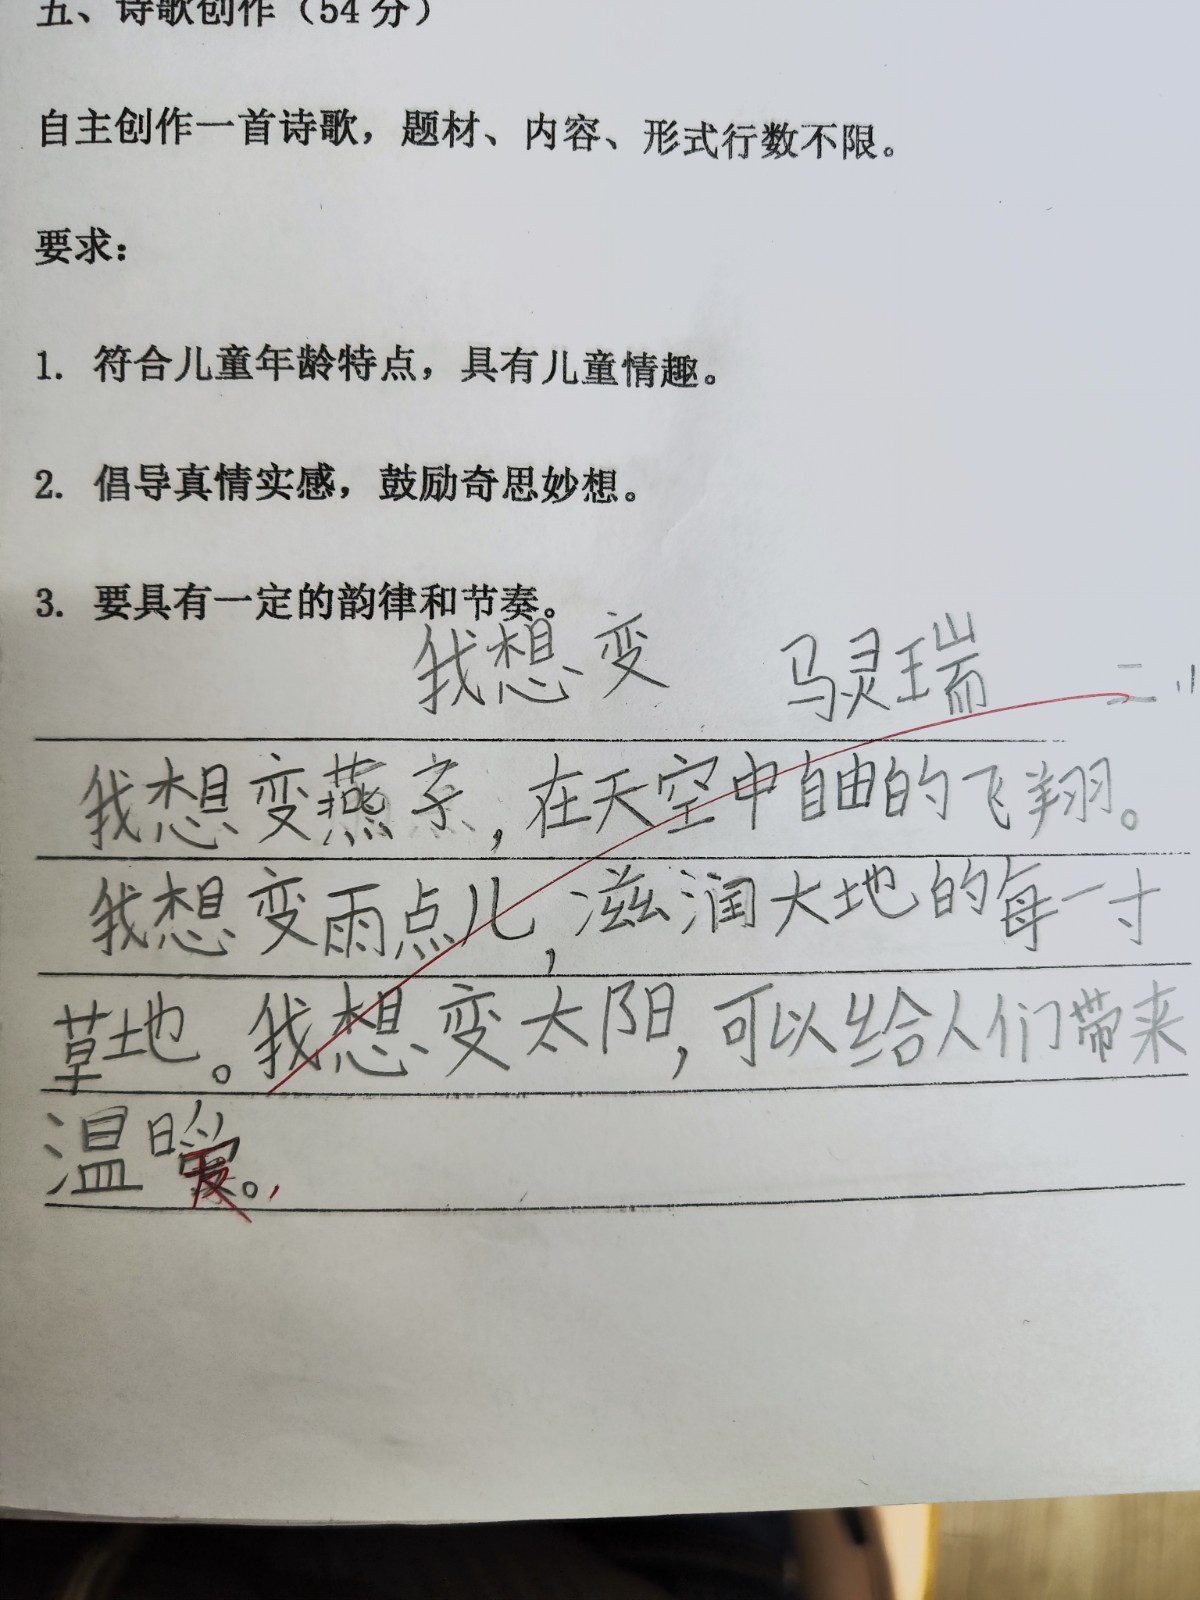 五、诗歌创作（54 分）
自主创作一首诗歌，题材、内容、形式行数不限。
要求：
1. 符合儿童年龄特点，具有儿童情趣。
2. 倡导真情实感，鼓励奇思妙想。
3. 要具有一定的韵律和节奏。
我想变 马灵瑞
我想变燕子，在天空中自由的飞翔。
我想变雨点儿，滋润大地的每一寸
草地。我想变太阳，可以给人们带来
温暖。